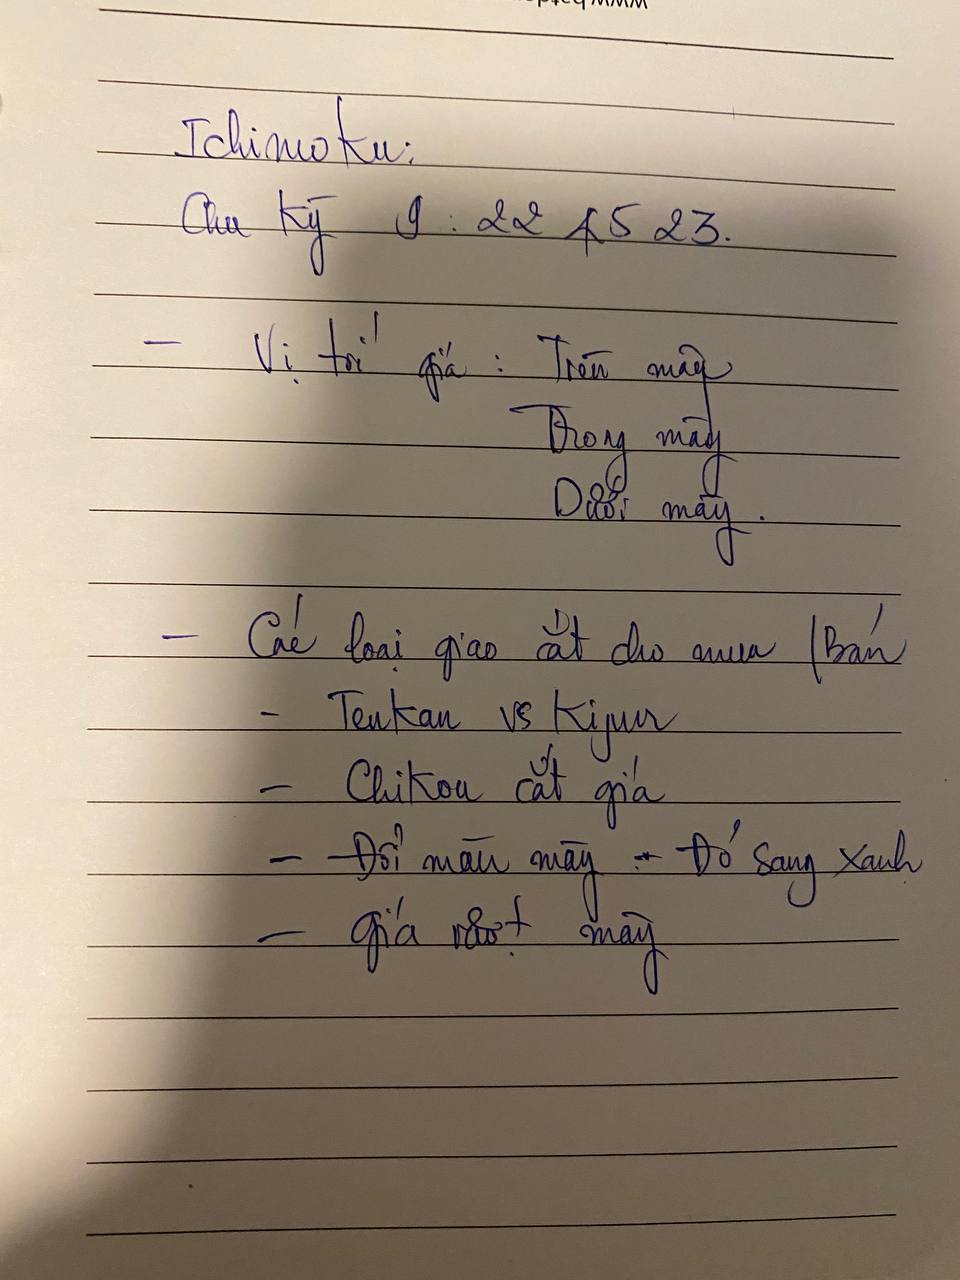 Ichimoku:
Chu kỳ 9 : 22 45 23.
- Vị trí giá : Trên mây
Trong mây
Dưới mây.
- Các loại giao cắt cho mua / Bán
- Tenkan vs Kijun
- Chikou cắt giá
- Đổi màu mây - Đỏ sang xanh
- giá vượt mây